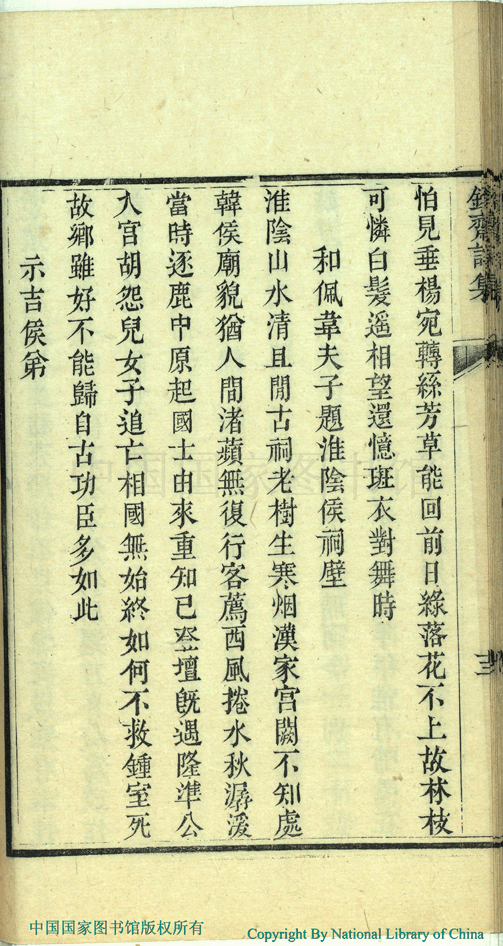 齋詩集
怕見垂楊宛轉絲芳草能回前日綠落花不上故林枝
可憐白髮遥相望還憶斑衣對舞時
和佩韋夫子題淮陰侯祠壁
淮陰山水清且閒古祠老樹生寒烟漢家宫闕不知處
韓侯廟貌猶人間渚蘋無復行客薦西風捲水秋潺湲
當時逐鹿中原起國士由來重知已登壇旣遇隆準公
入宫胡怨兒女子追亡相國無始終如何不救鍾室死
故鄉雖好不能歸自古功臣多如此
示吉侯弟
中国国家图书馆
中国国家图书馆版权所有
Copyright By National Library of China